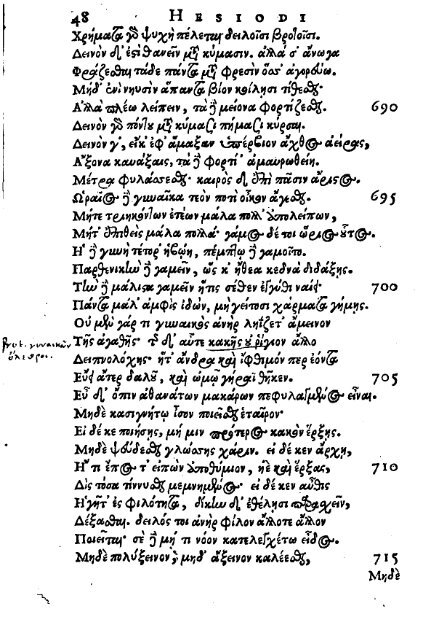 48 HESIODI
Χρήματα γὸ ψυχὴ πέλεται δειλοῖσι βροτοῖσι.
Δεινὸν δ' ἐστὶ θανεῖν μετὰ κύμασιν. ἀλλά σ' ἄνωγα
Φράζεσθαι τάδε πάντα μετὰ φρεσὶν ὡς ἀγορεύω.
Μηδ' ἐνὶ νηυσὶν ἅπαντα βίον κοίλῃσι τίθεσθαι·
Ἀλλὰ πλέω λείπειν, τὰ δὲ μείονα φορτίζεσθαι. 690
Δεινὸν γὸ πόντου μετὰ κύμασι πήματι κύρσαι.
Δεινὸν γ', εἴκ' ἐφ' ἅμαξαν ὑπέρβιον ἄχθος ἀείρας,
Ἄξονα καυάξαις, τὰ δὲ φορτί' ἀμαυρωθείη.
Μέτρα φυλάσσεσθαι· καιρὸς δ' ἐπὶ πᾶσιν ἄριστος.
Ὡραῖος δὲ γυναῖκα τεὸν ποτὶ οἶκον ἄγεσθαι. 695
Μήτε τριηκόντων ἐτέων μάλα πολλ' ἀπολείπων,
Μήτ' ἐπιθεὶς μάλα πολλά· γάμος δέ τοι ὥριος οὗτος.
Ἡ δὲ γυνὴ τέτορ' ἡβώῃ, πέμπτῳ δὲ γαμοῖτο.
Παρθενικὴν δὲ γαμεῖν, ὥς κ' ἤθεα κεδνὰ διδάξῃς.
Τὴν δὲ μάλιστα γαμεῖν ἥτις σέθεν ἐγγύθι ναίει· 700
Πάντα μάλ' ἀμφὶς ἰδών, μὴ γείτοσι χάρματα γήμῃς.
Οὐ μὲν γάρ τι γυναικὸς ἀνὴρ ληΐζετ' ἄμεινον
Τῆς ἀγαθῆς· τῆς δ' αὖτε κακῆς οὐ ῥίγιον ἄλλο
Δειπνολόχης· ἥτ' ἄνδρα καὶ ἴφθιμόν περ ἐόντα
Εὕει ἄτερ δαλοῦ, καὶ ὠμῷ γήραϊ θῆκεν. 705
Εὖ δ' ὄπιν ἀθανάτων μακάρων πεφυλαγμένος εἶναι.
Μηδὲ κασιγνήτῳ ἶσον ποιεῖσθαι ἑταῖρον·
Εἰ δέ κε ποιήσῃς, μή μιν πρότερος κακὸν ἔρξῃς.
Μηδὲ ψεύδεσθαι γλώσσης χάριν. εἰ δέ κεν ἄρχῃ,
Ἤ τι ἔπος τ' εἰπὼν ἀποθύμιον, ἠὲ καὶ ἔρξας, 710
Δὶς τόσα τίννυσθαι μεμνημένος· εἰ δέ κεν αὖθις
Ἡγῆτ' ἐς φιλότητα, δίκην δ' ἐθέλῃσι παρασχεῖν,
Δέξασθαι. δειλός τοι ἀνὴρ φίλον ἄλλοτε ἄλλον
Ποιεῖται· σὲ δὲ μή τι νόον κατελεγχέτω εἶδος.
Μηδὲ πολύξεινον, μηδ' ἄξεινον καλέεσθαι, 715
Μηδὲ